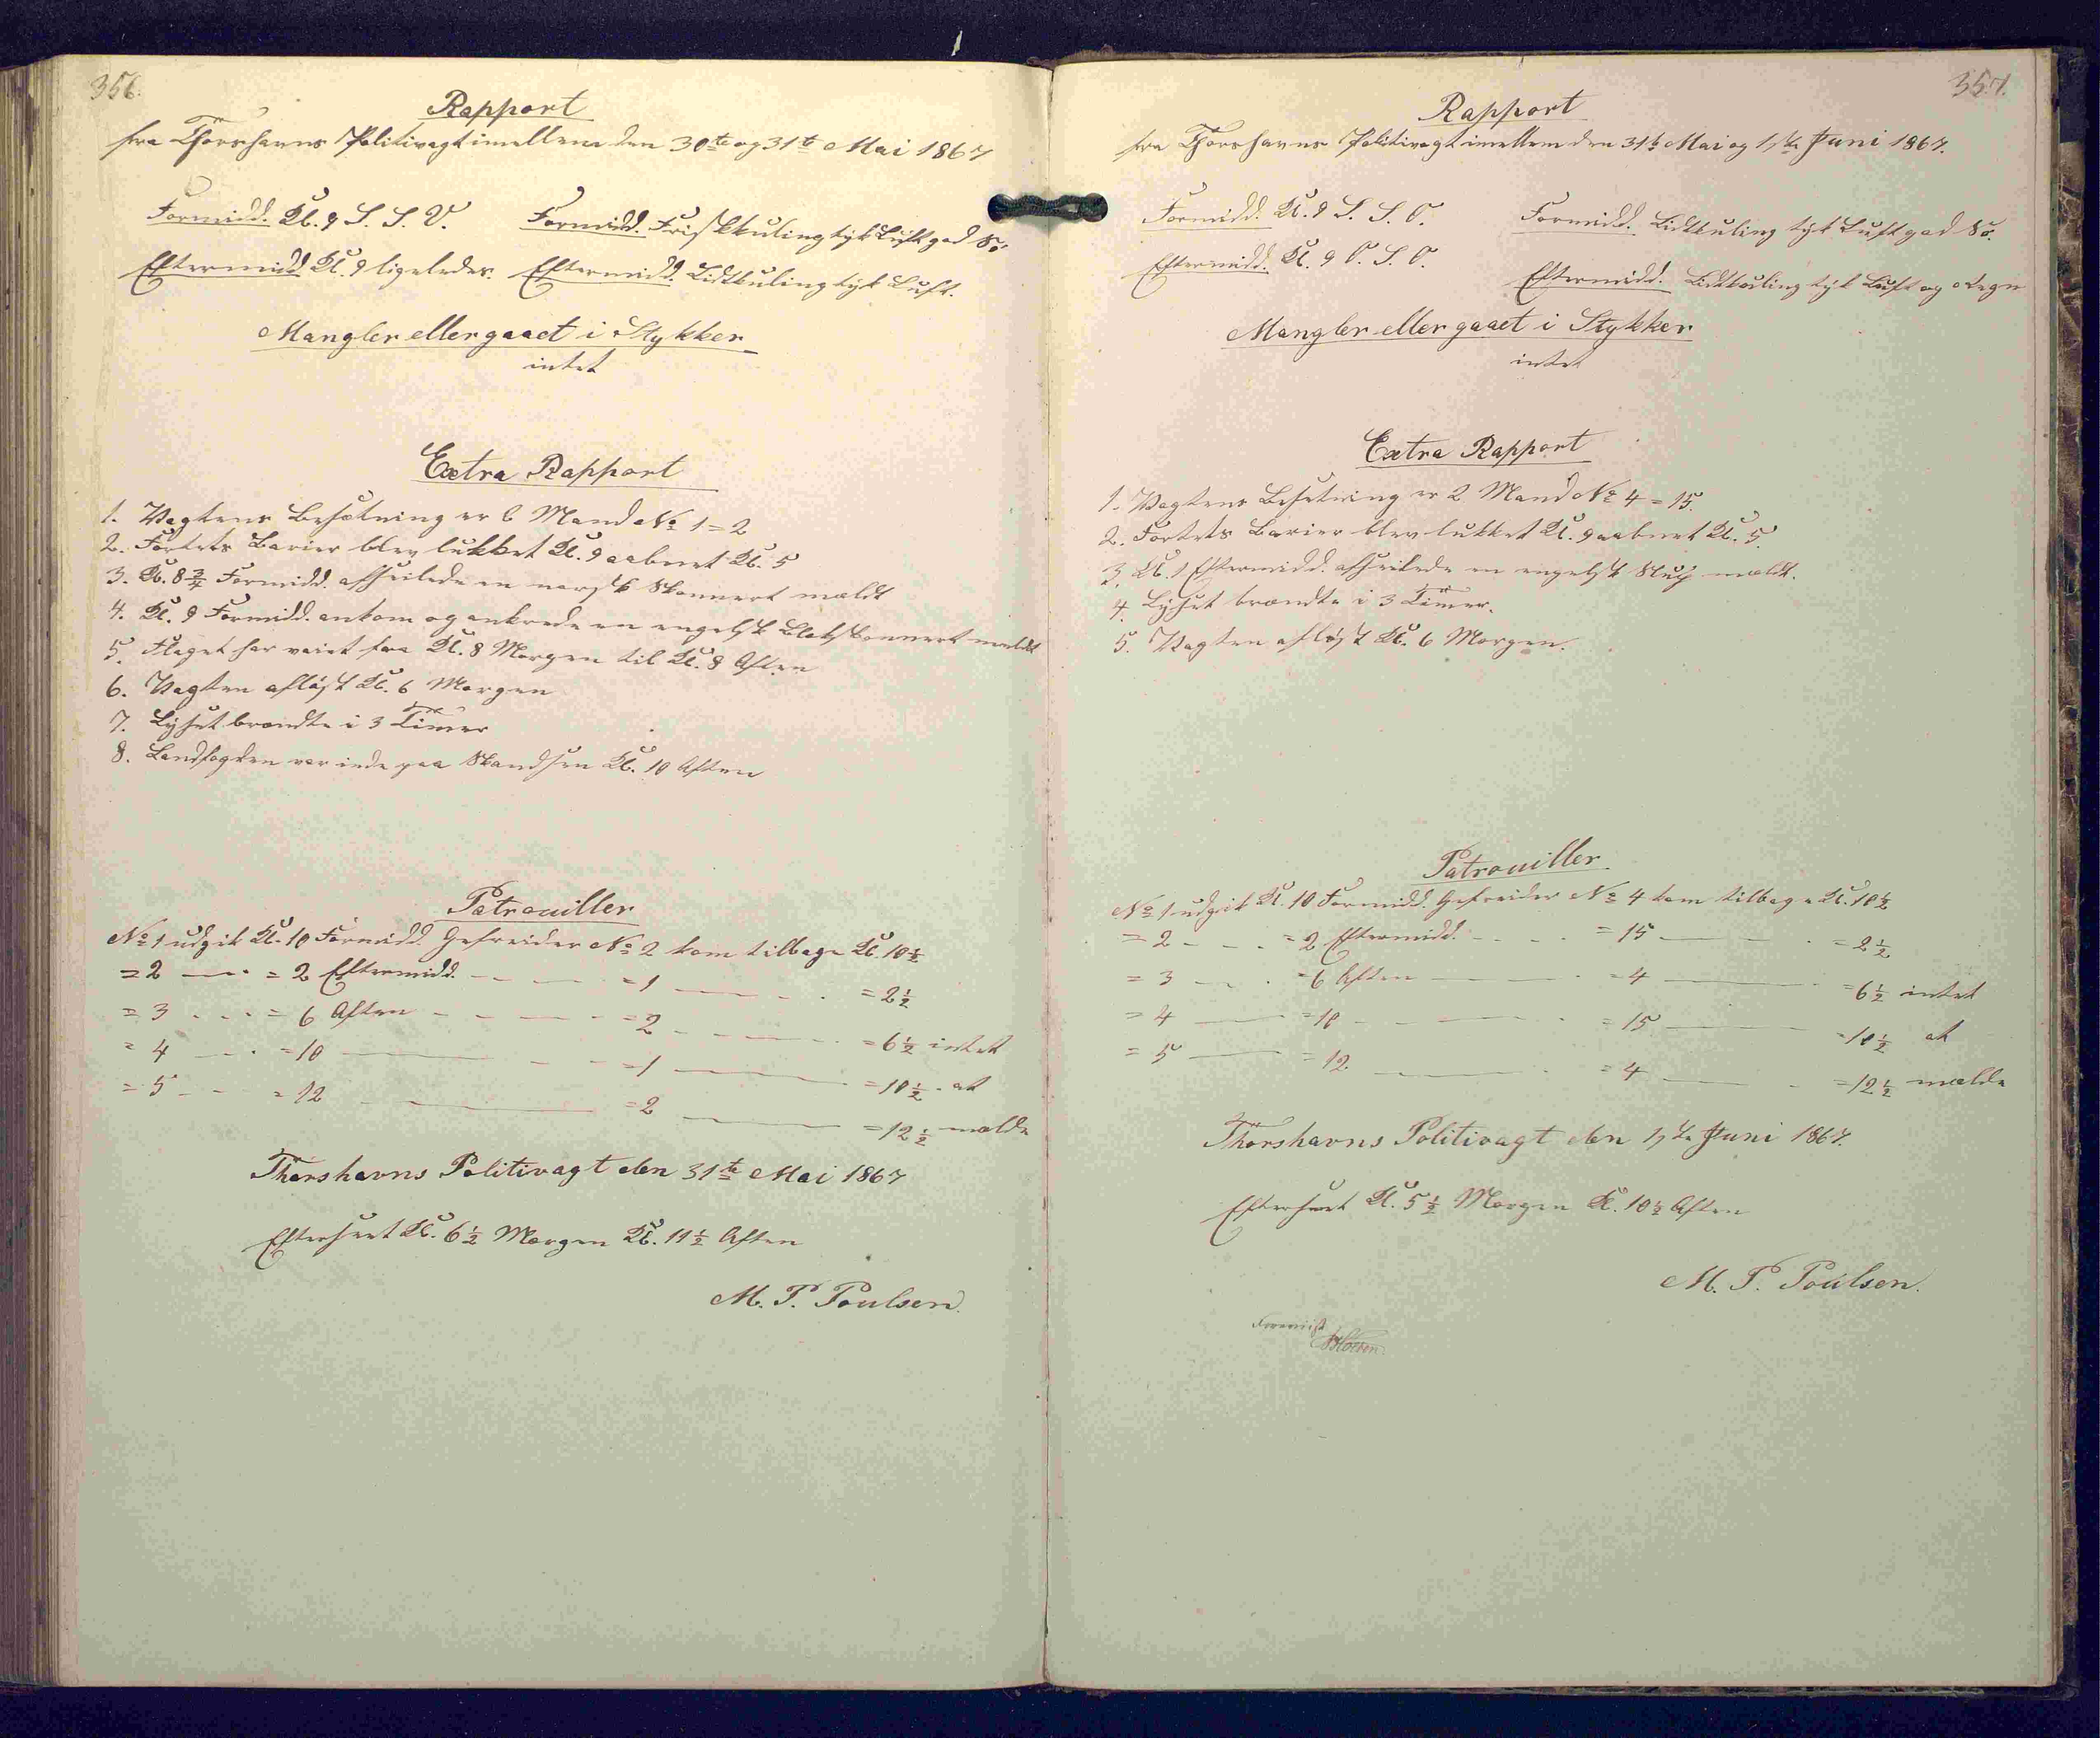 356.
Rapport
fra Thorshavns Politivagt imellem den 30te og 31te Mai 1867
Formidd. Kl. 9 S. S. V. Formidd. Frisk kuling tyk Luft god Sö.
Eftermidd. Kl. 9 ligeledes. Eftermidd. Lidt kuling tyk Luft.
Mangler eller gaaet i Stykker
intet
Extra Rapport
1. Vagtens Besætning er 2 Mand No 1 = 2
2. Fortets Barier blev lukket Kl. 9 aabnet Kl. 5
3. Kl. 8 3/4 Formidd. afseilede en norsk Skonnert mældt
4. Kl. 9 Formidd. ankom og ankrede en engelsk Skonnert mældt
5. Flaget har vaiet fra Kl. 8 Morgen til Kl. 8 Aften
6. Vagten aflöst Kl. 6 Morgen
7. Lyset brændte i 3 Timer
8. Landfogden var inde paa Skandsen Kl. 10 Aften
Patrouiller
No 1 udgik Kl. 10 Formidd. Gefreider No 2 kom tilbage Kl. 10 1/2
= 2 — = 2 Eftermidd. — = 1 — = 2 1/2
= 3 — = 6 Aften — = 2 — = 6 1/2 intet
= 4 — = 10 — = 1 — = 10 1/2 at
= 5 — = 12 — = 2 — = 12 1/2 mælde
Thorshavns Politivagt den 31te Mai 1867
Efterseet Kl. 6 1/2 Morgen Kl. 11 1/2 Aften
M. P. Poulsen.
357.
Rapport
fra Thorshavns Politivagt imellem den 31te Mai og 1ste Juni 1867.
Formidd. Kl. 9 S. S. O. Formidd. Lidt kuling tyk Luft god Sö.
Eftermidd. Kl. 9 O. S. O. Eftermidd. Lidt kuling tyk Luft og Regn
Mangler eller gaaet i Stykker
intet
Extra Rapport
1. Vagtens Besætning er 2 Mand No 4 = 15.
2. Fortets Barier blev lukket Kl. 9 aabnet Kl. 5.
3. Kl. 1 Eftermidd. afseilede en engelsk Slup mældt.
4. Lyset brændte i 3 Timer.
5. Vagten aflöst Kl. 6 Morgen.
Patrouiller.
No 1 udgik Kl. 10 Formidd. Gefreider No 4 kom tilbage Kl. 10 1/2
= 2 — = 2 Eftermidd. — = 15 — = 2 1/2
= 3 — = 6 Aften — = 4 — = 6 1/2 intet
= 4 — = 10 — = 15 — = 10 1/2 at
= 5 — = 12. — = 4 — = 12 1/2 mælde
Thorshavns Politivagt den 1ste Juni 1867.
Efterseet Kl. 5 1/2 Morgen Kl. 10 1/2 Aften
M. P. Poulsen.
Forevist